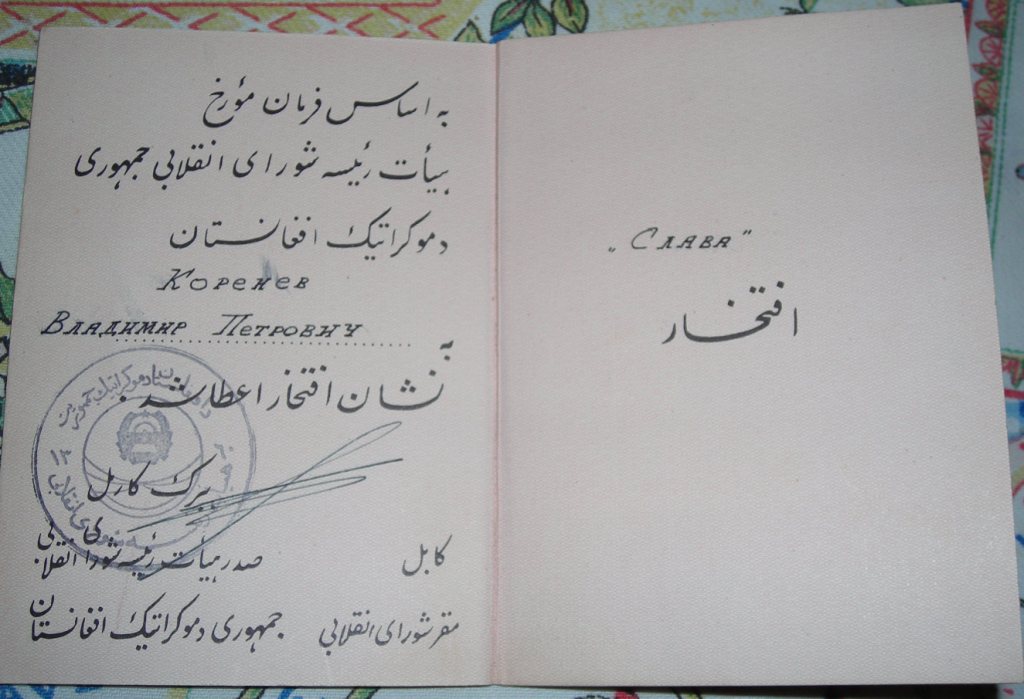 به اساس فرمان مؤرخ
هیأت رئیسه شورای انقلابی جمهوری
دموکراتیک افغانستان
Коренев
Владимир Петрович
به
نشان افتخار اعطا شد.
ببرک کارمل
صدر هیأت رئیسه شورای انقلابی
کابل
مقر شورای انقلابی جمهوری دموکراتیک افغانستان
"Слава"
افتخار